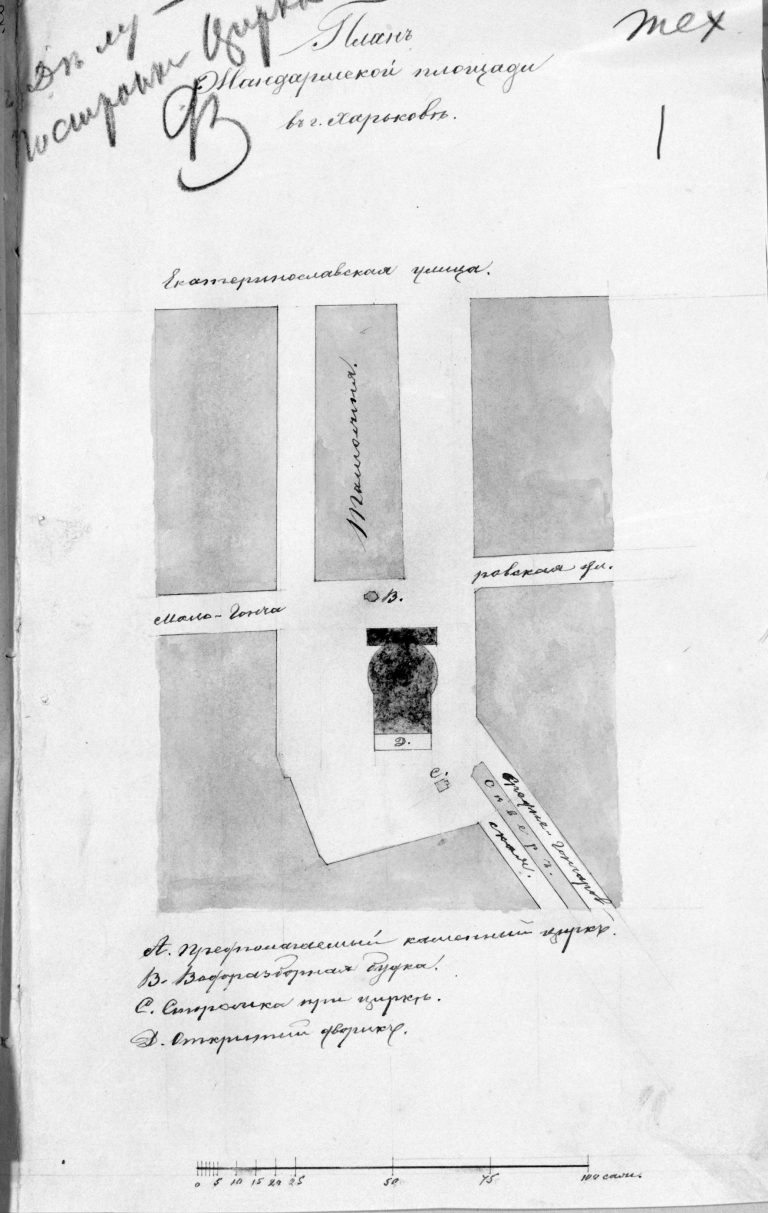 Дѣлу
постройки Цирка
тех
1
Планъ
Жандармской площади
въ г. Харьковѣ.
Екатеринославская улица.
Мало-Гонча
ровская ул.
В.
Д.
С.
Средне-Гончаров
скверъ.
ская.
А. Предполагаемый каменный циркъ.
В. Водоразборная будка.
С. Сторожка при циркѣ.
Д. Открытый дворикъ.
0 5 10 15 20 25 50 75 100 саж.